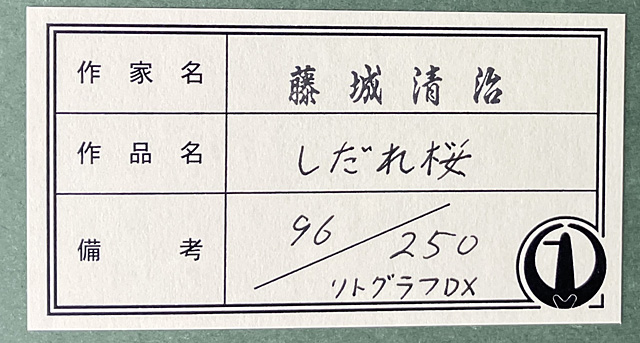 作家名 藤城清治
作品名 しだれ桜
備考 96/250
リトグラフDX